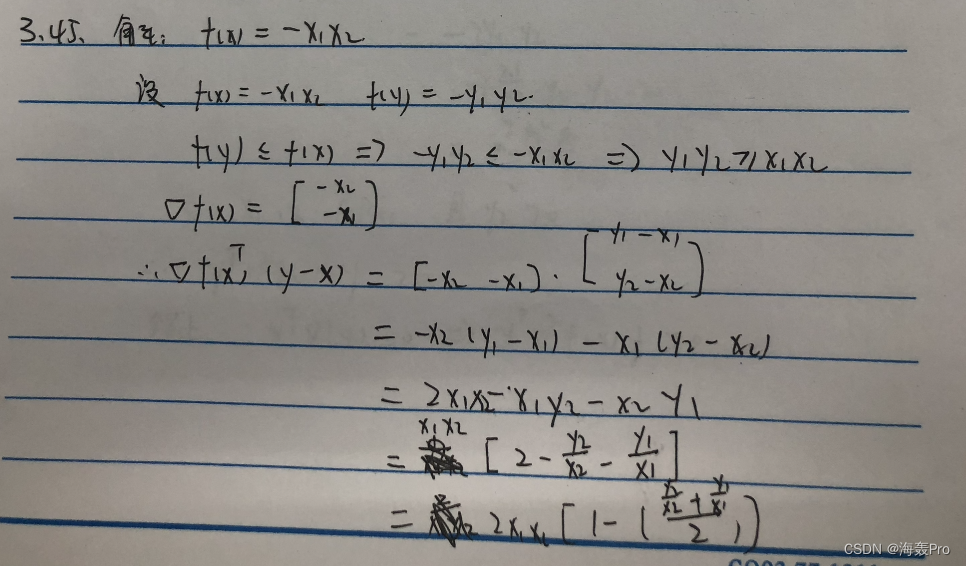 3.45、 解: f(x) = -x₁x₂
设 f(x) = -x₁x₂ f(y) = -y₁y₂.
f(y) ≤ f(x) => -y₁y₂ ≤ -x₁x₂ => y₁y₂ ≥ x₁x₂
∇f(x) = [-x₂ -x₁]
∴ ∇f(x)ᵀ (y-x) = [-x₂ -x₁] · [y₁-x₁ y₂-x₂]
= -x₂(y₁-x₁) - x₁(y₂-x₂)
= 2x₁x₂ - x₁y₂ - x₂y₁
= x₁x₂ [2 - y₂/x₂ - y₁/x₁]
= 2x₁x₂ [1 - ((y₂/x₂ + y₁/x₁)/2)]
CSDN @海轰Pro